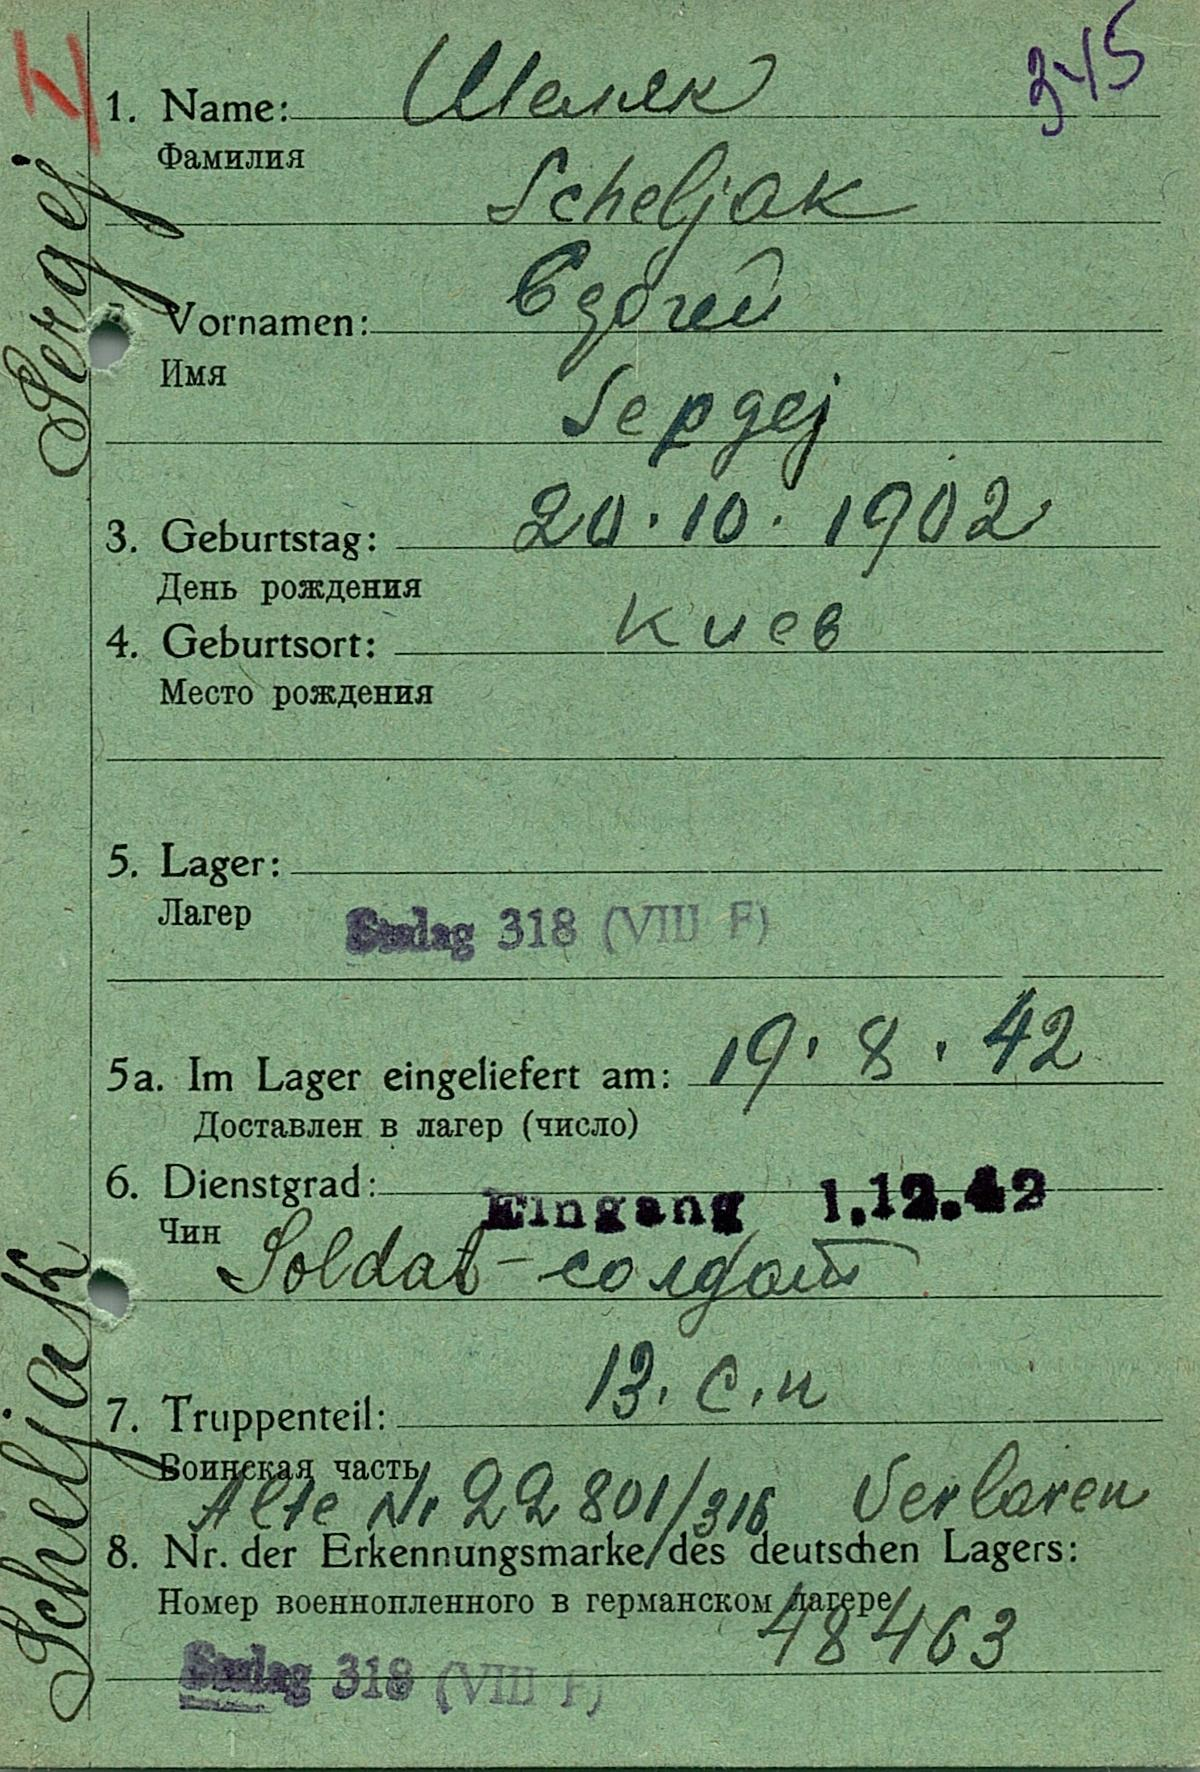 345
1. Name: Шеляк
Фамилия
Scheljak
Vornamen:
Имя
Sepgej
3. Geburtstag: 20.10.1902
День рождения
4. Geburtsort: Киев
Место рождения
5. Lager:
Лагер
Stalag 318 (VIII F)
5a. Im Lager eingeliefert am: 19.8.42
Доставлен в лагер (число)
6. Dienstgrad:
Eingang 1.12.42
Чин
Soldat - солдат
7. Truppenteil: 13. с.п
Воинская часть
Alte Nr 22801/316 Verloren
8. Nr. der Erkennungsmarke/des deutschen Lagers:
Номер военнопленного в германском лагере
48463
Stalag 318 (VIII F)
Scheljak Sergej